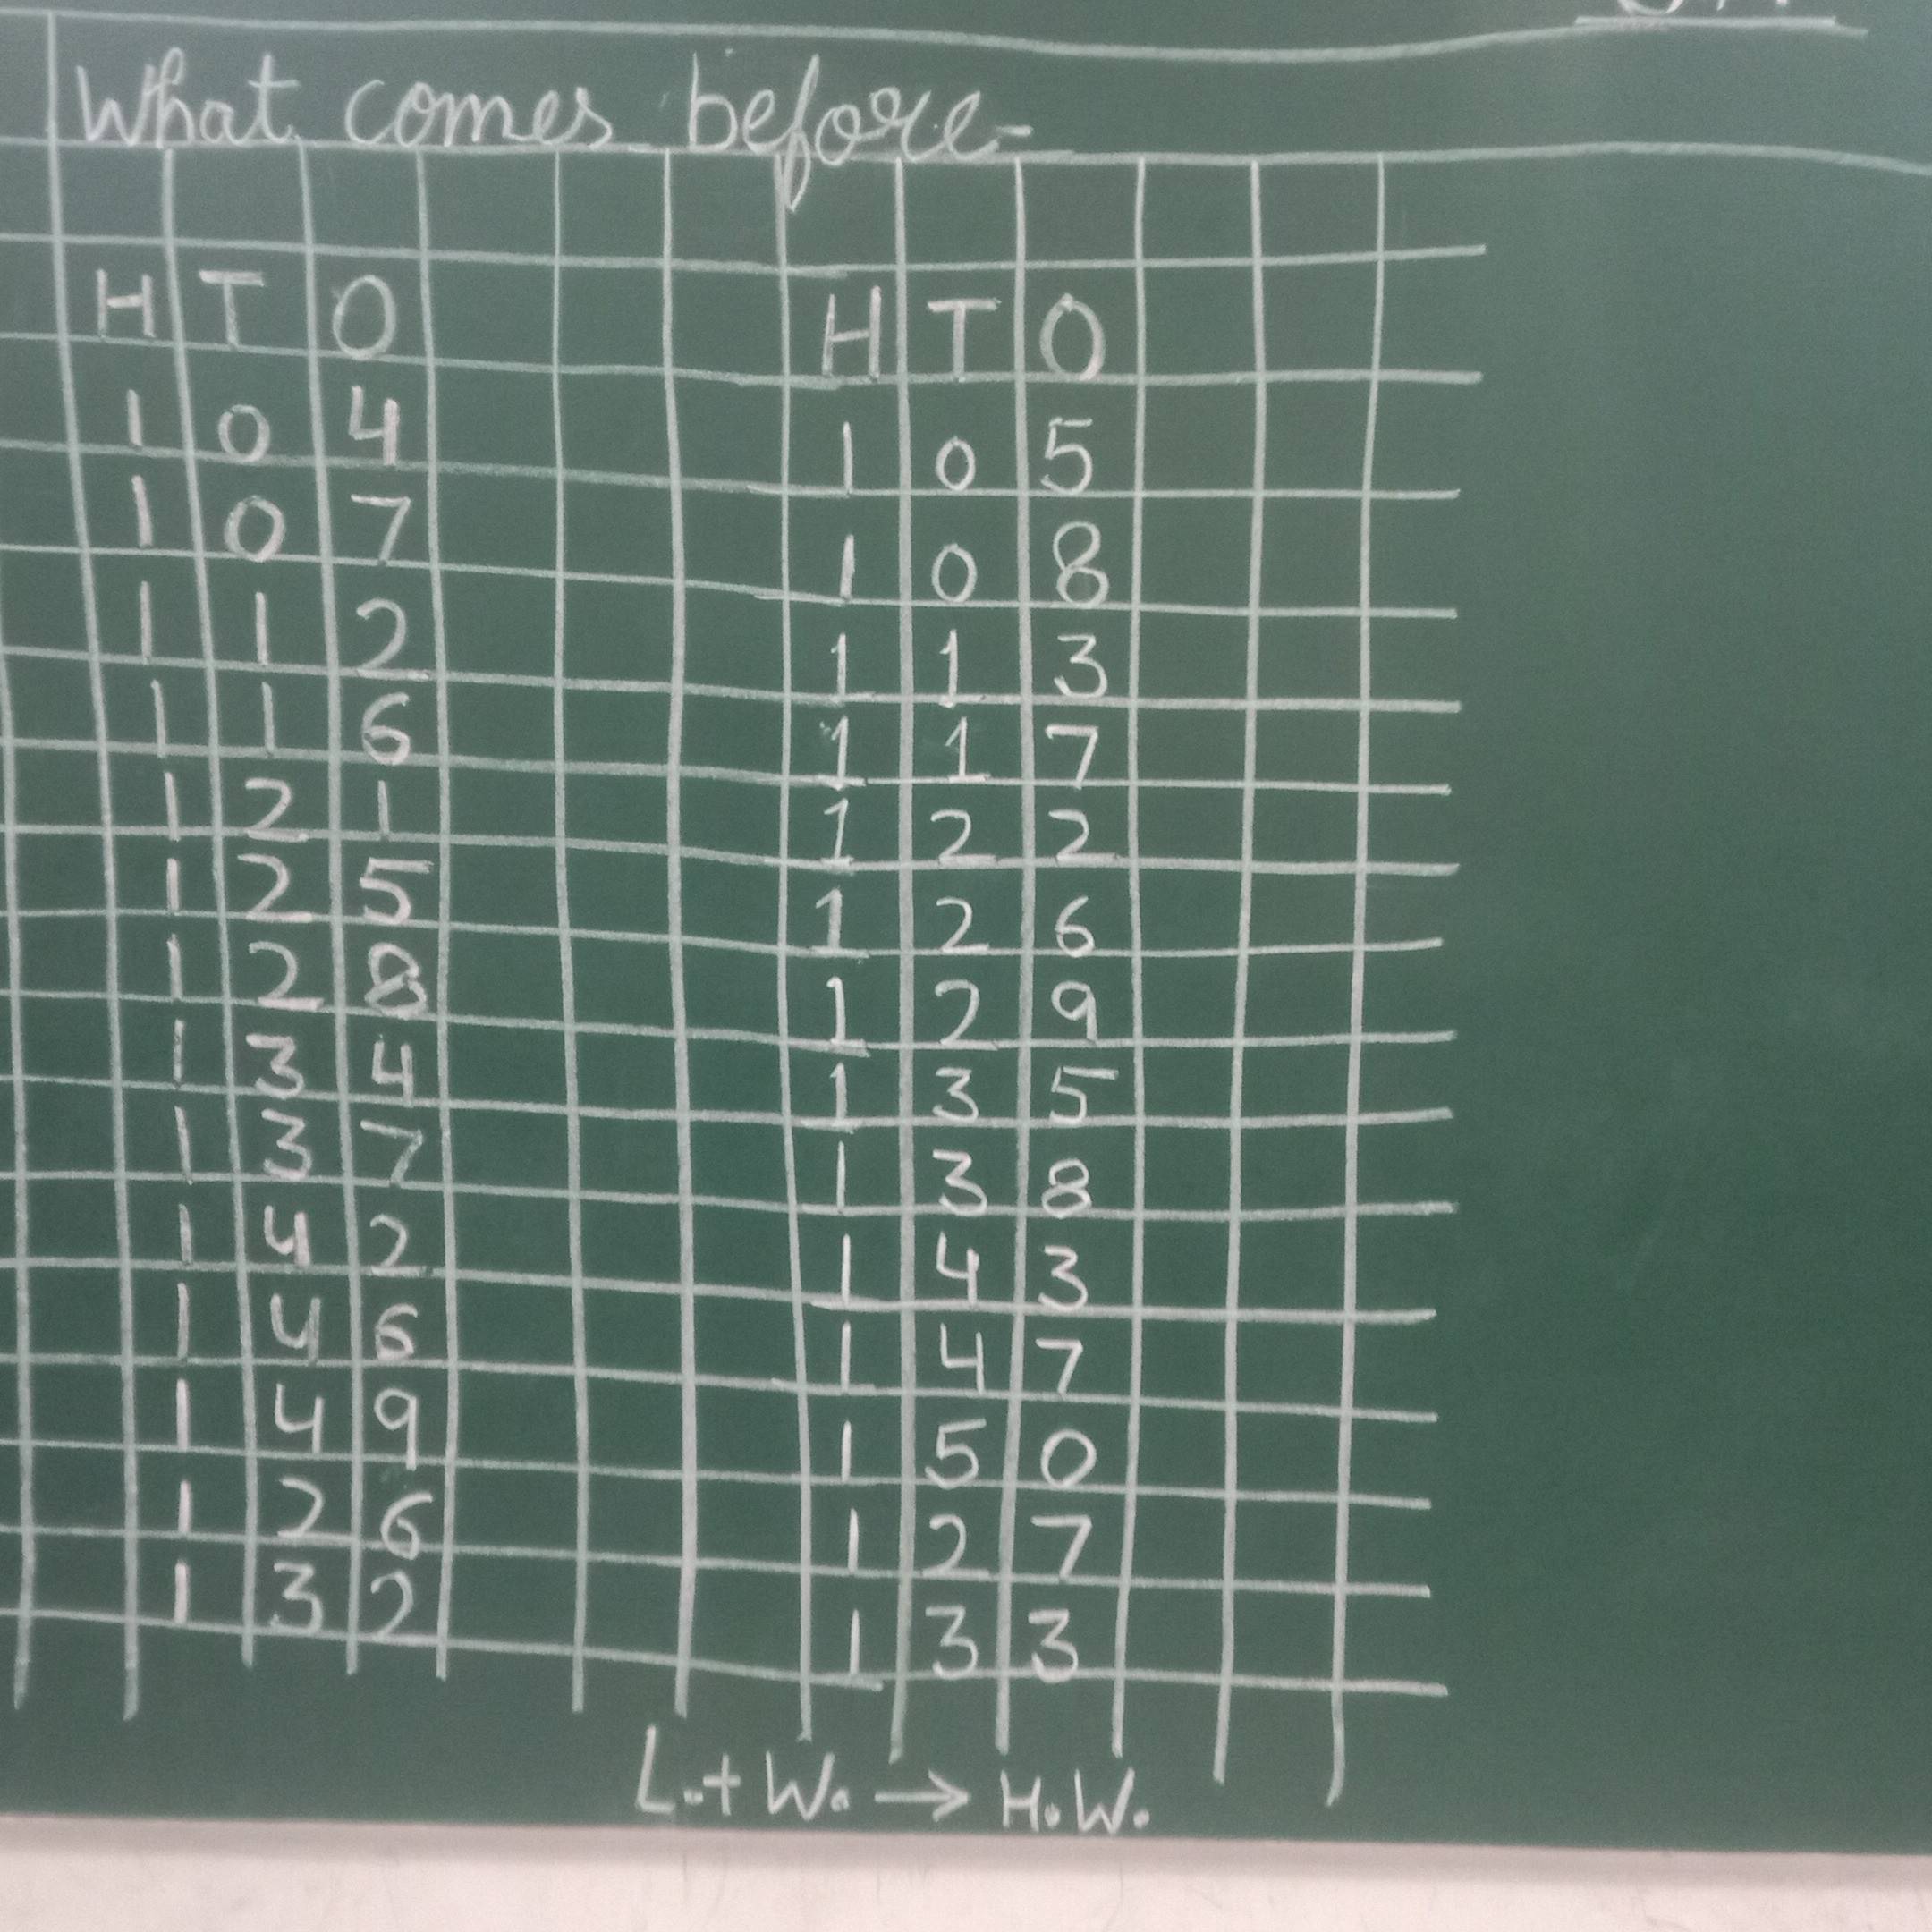 What comes before-
H T O H T O
1 0 4 1 0 5
1 0 7 1 0 8
1 1 2 1 1 3
1 1 6 1 1 7
1 2 1 1 2 2
1 2 5 1 2 6
1 2 8 1 2 9
1 3 4 1 3 5
1 3 7 1 3 8
1 4 2 1 4 3
1 4 6 1 4 7
1 4 9 1 5 0
1 2 6 1 2 7
1 3 2 1 3 3
L.+W. → H.W.